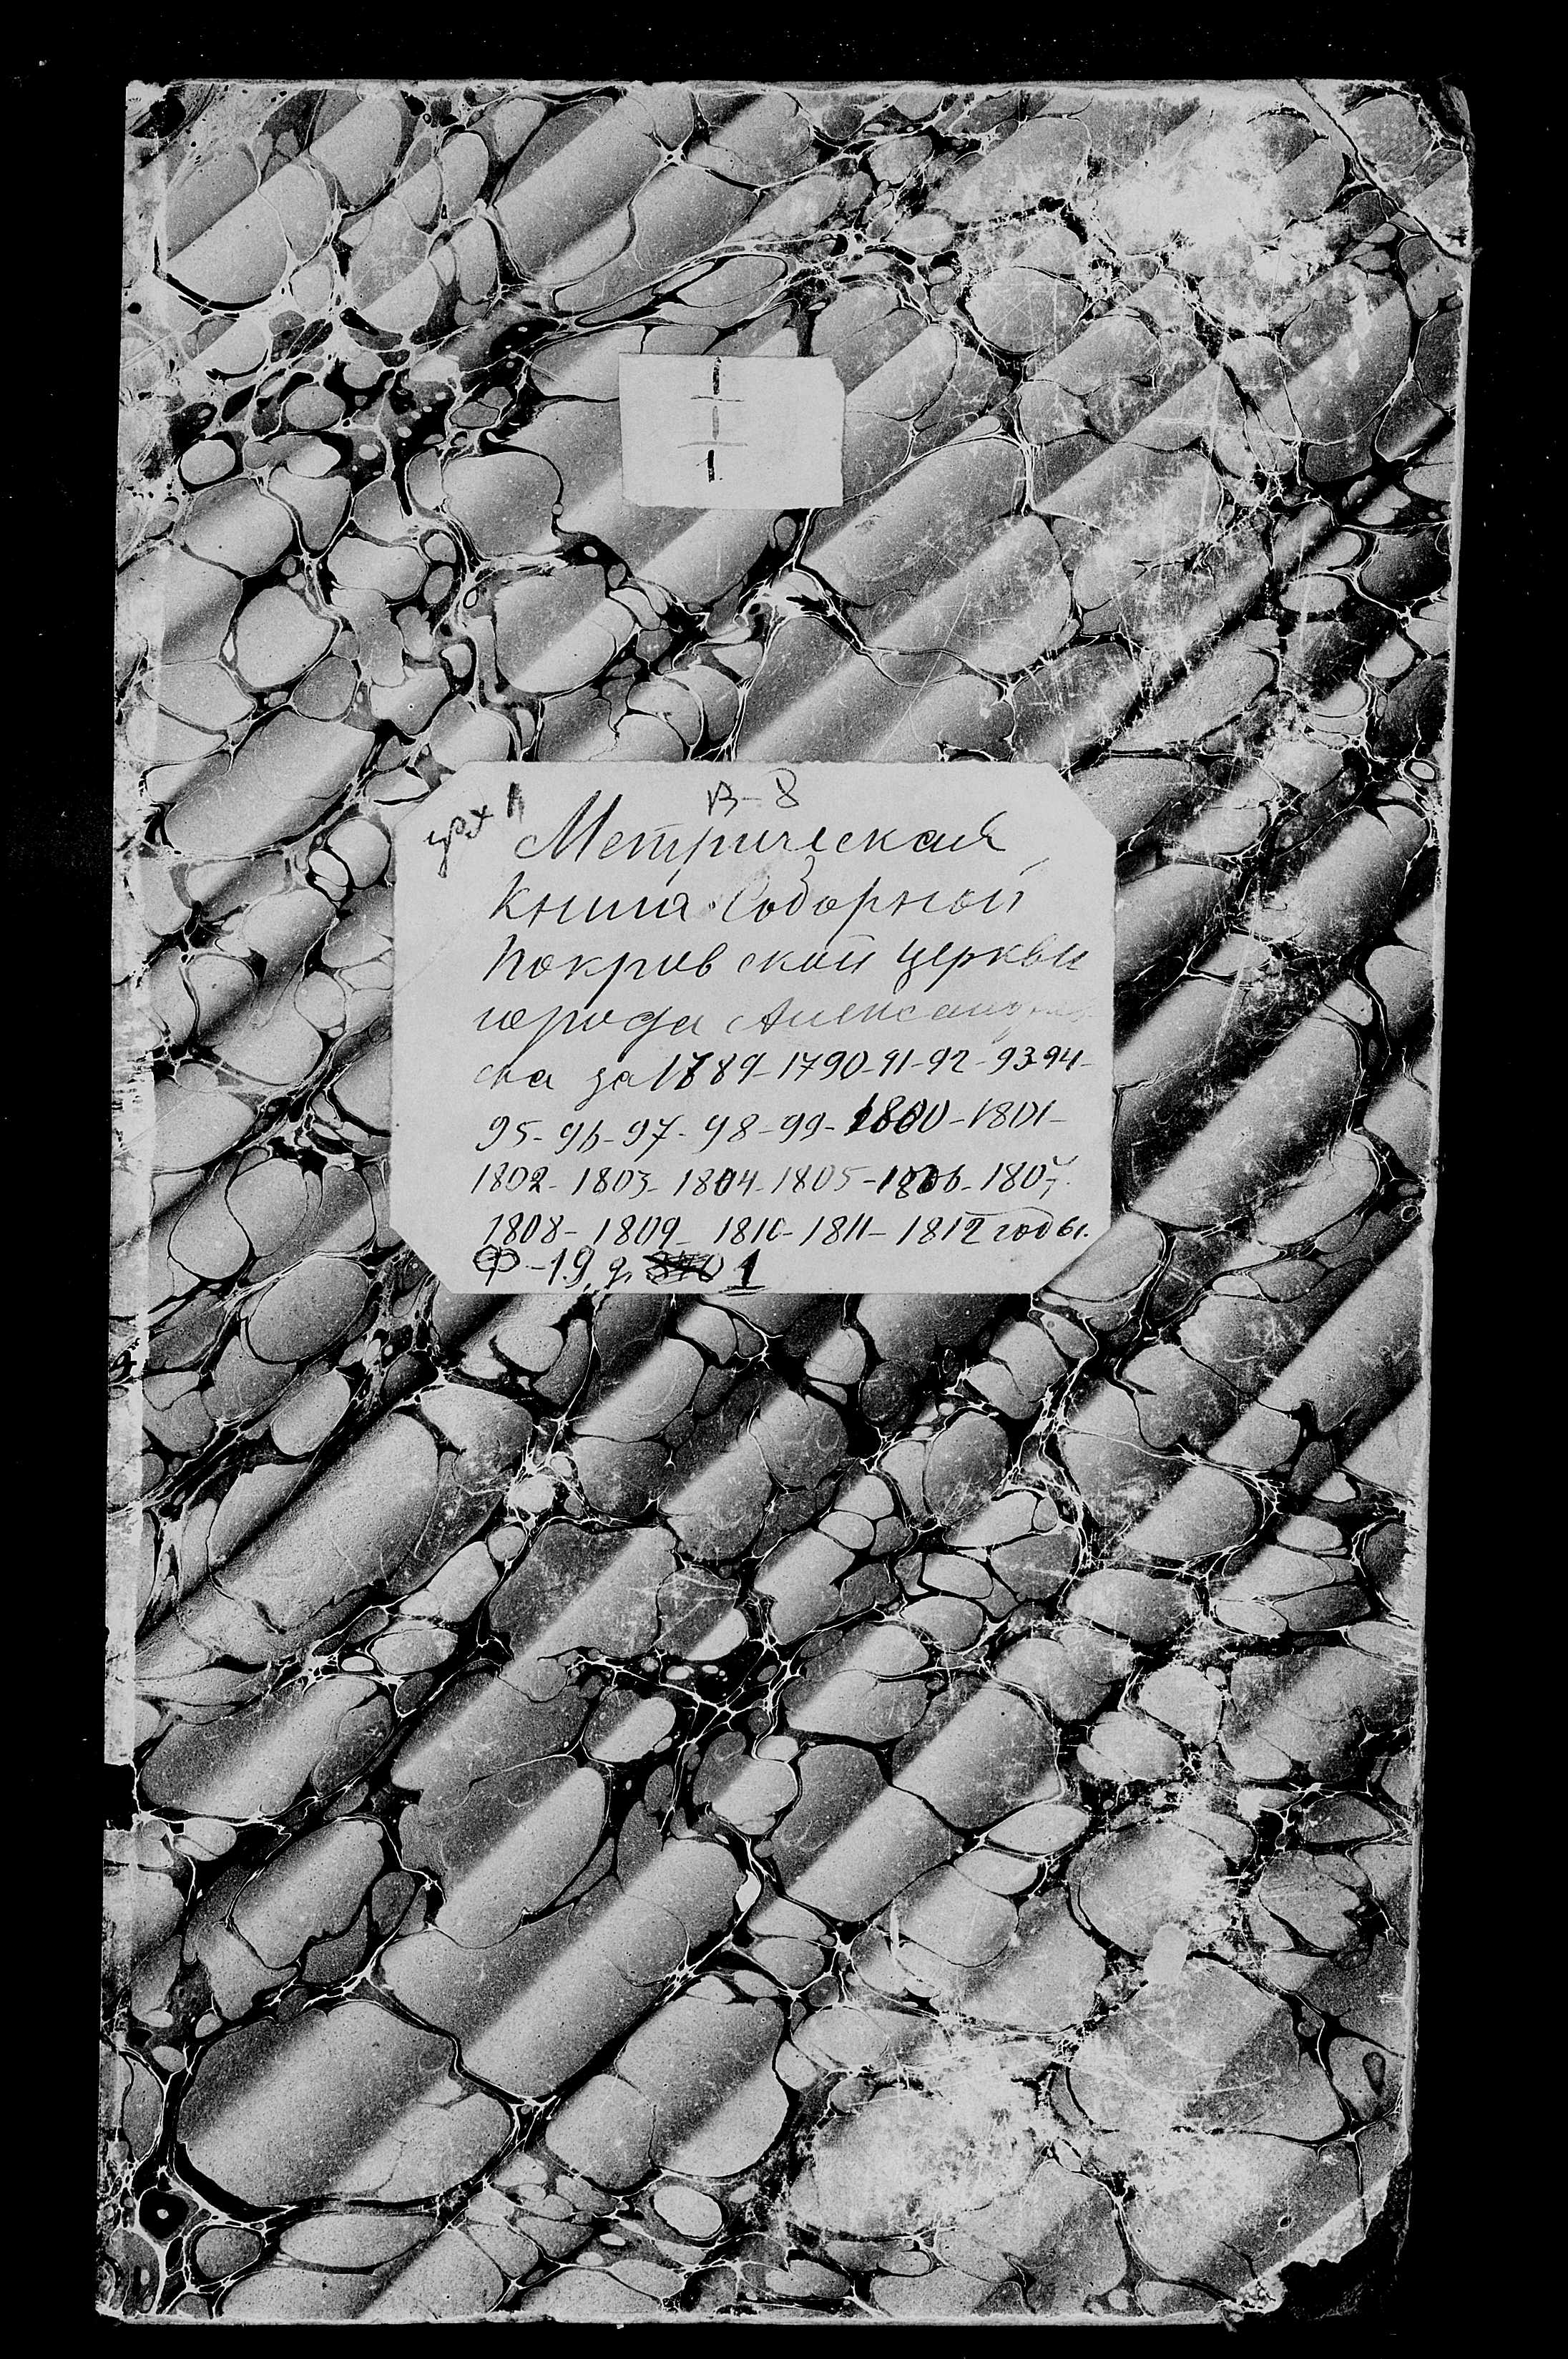 1
1
1
В-8
Метрическая
книга Соборной
Покров ской церкви
города Александров
ска за 1789-1790-91-92-93-94-
95-96-97-98-99-1800-1801-
1802-1803-1804-1805-1806-1807
1808-1809-1810-1811-1812 годы.
Ф-19, д. 1